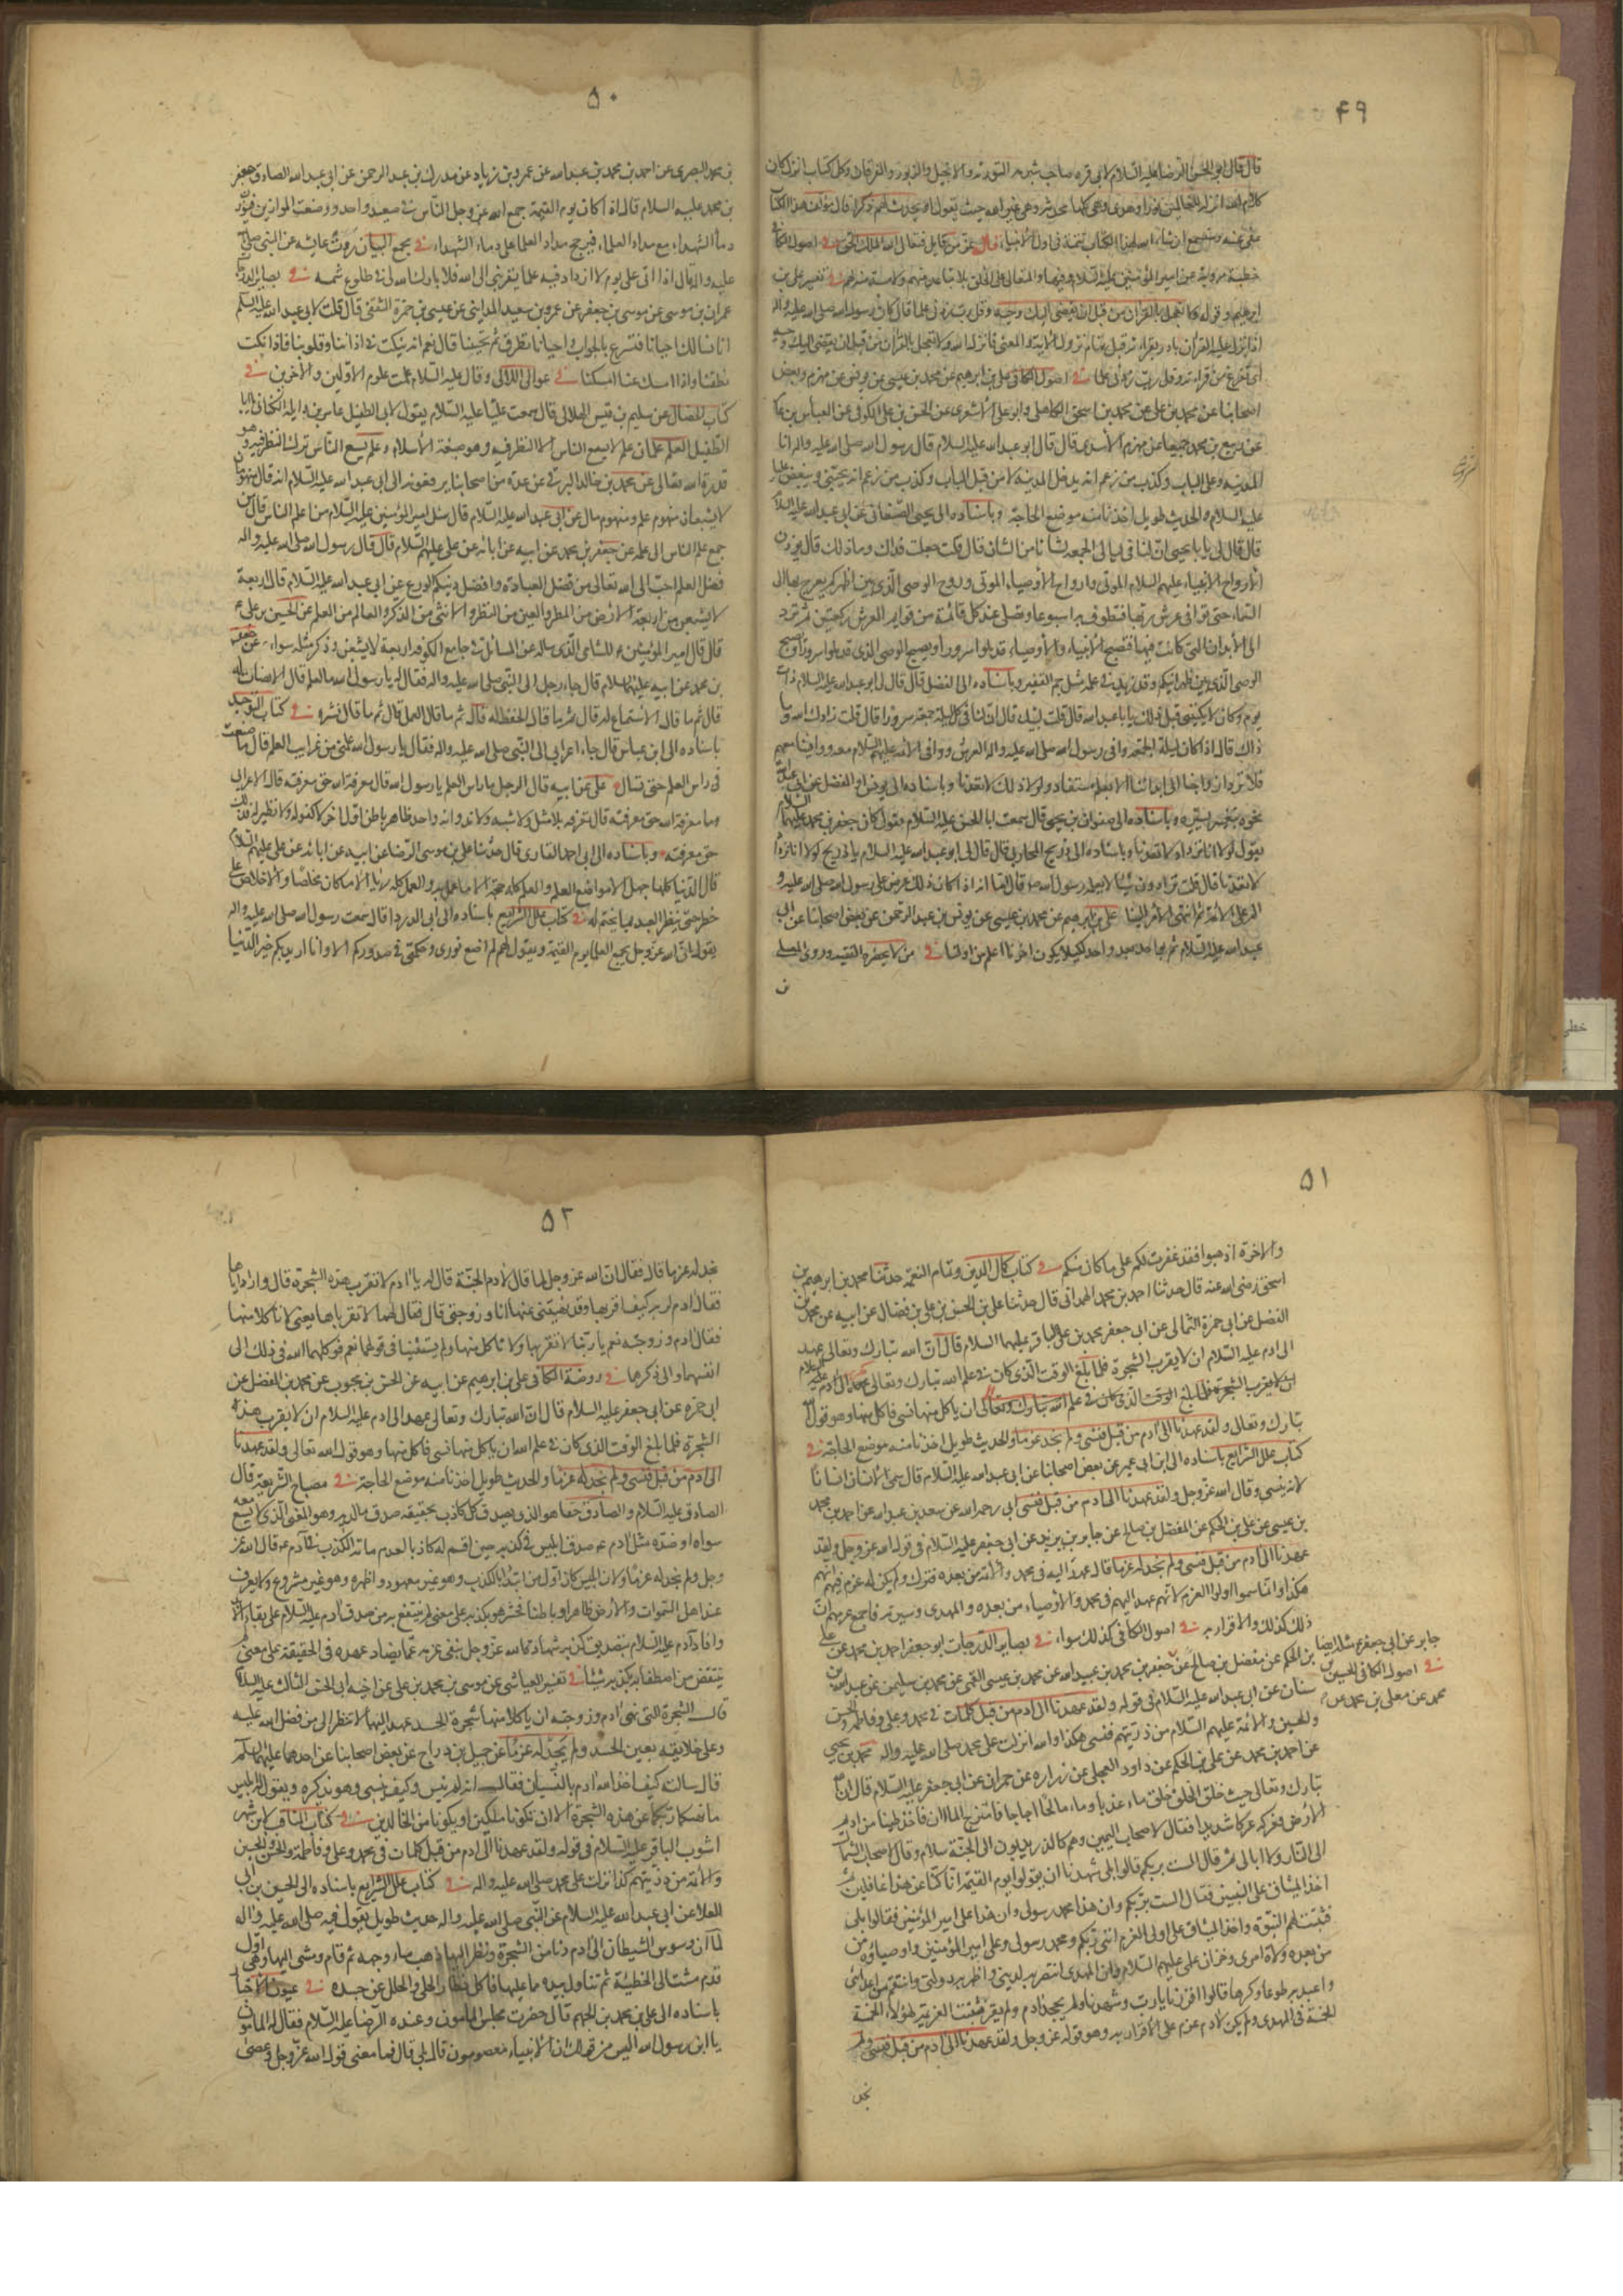 ۴۹
قال قال ابو الحسن الرضا عليه السلام لابى قره صاحب شبرمه التورية والانجيل والزبور والفرقان وكل كتاب انزل كان
كلام الله انزله للعالمين نورا وهدى وهى كلها محدثه وهى غير الله حيث يقول او يحدث لهم ذكرا قال مؤلف هذا الكتاب
خطبة مروية عن امير المؤمنين عليه السلام وفيها والمتعالى على الخلق بلا تباعد منهم ولا ملامسة منه لهم فى تفسير على بن
ابرهيم وقوله ولا تعجل بالقرآن من قبل ان يقضى اليك وحيه وقل رب زدنى علما قال كان رسول الله صلى الله عليه واله
اذا نزل عليه القرآن بادر بقرائته قبل تمام نزول الآية والمعنى فانزل الله ولا تعجل بالقرآن من قبل ان يقضى اليك وحيه
اى تفرغ من قرائته وقل رب زدنى علما فى اصول الكافى على بن ابرهيم عن محمد بن عيسى عن يونس عن مهزم وبعض
اصحابنا عن محمد بن على عن محمد بن اسحق الكاهلى وابو على الأشعرى عن الحسن بن على الكوفى عن العباس بن عامر
عن ربيع بن محمد جميعا عن مهزم الأسدى قال قال ابو عبد الله عليه السلام قال رسول الله صلى الله عليه واله انا
المدينه وعلى الباب وكذب من زعم انه يدخل المدينة لا من قبل الباب وكذب من زعم انه يحبنى ويبغض عليا
عليه السلام والحديث طويل اخذنا منه موضع الحاجة وباسناده الى يحيى الصنعانى عن ابى عبد الله عليه السلام
قال قال لى يا با يحيى ان لنا فى ليالى الجمعه لشأنا من الشان قال قلت جعلت فداك وما ذلك قال يؤذن
لارواح الانبياء عليهم السلام الموتى وارواح الأوصياء الموتى وروح الوصى الذى بين اظهركم يعرج بها الى
السماء حتى توافى عرش ربها فتطوف به اسبوعا وتصلى عند كل قائمة من قوائم العرش ركعتين ثم ترد
الى الأبدان التى كانت فيها فتصبح الأنبياء والأوصياء قد ملوا سرورا ويصبح الوصى الذى
الوصى الذى بين ظهرانيكم وقد زيد فى علمه مثل جم الغفير وباسناده الى المفضل قال قال لى ابو عبد الله عليه السلام ذات
يوم وكان لا يكنينى قبل ذلك يا با عبد الله قال قلت لبيك قال ان لنا فى كل ليلة جمعة سرورا قال قلت زادك الله وما
ذاك قال اذا كان ليلة الجمعه وافى رسول الله صلى الله عليه واله العرش ووافى الائمه عليهم السلام معه ووافينا معهم
فلا ترد ارواحنا الى ابداننا الا بعلم مستفاد ولولا ذلك لانفدنا وباسناده الى يونس او المفضل عن ابى عبد الله
نحوه بتغيير يسير وباسناده الى صفوان بن يحيى قال سمعت ابا الحسن عليه السلام يقول كان جعفر بن محمد عليهما السلام
يقول لولا انا نزداد لانفدنا وباسناده الى ذريح المحاربى قال قال لى ابو عبد الله عليه السلام يا ذريح لولا انا نزداد
لانفدنا قال قلت تزدادون شيئا لا يعلمه رسول الله قال اما انه اذا كان ذلك عرض على رسول الله صلى الله عليه و
اله على الائمة ثم انتهى الأمر الينا على بن ابرهيم عن محمد بن عيسى عن يونس بن عبد الرحمن عن بعض اصحابنا عن ابى
عبد الله عليه السلام لكيلا يكون اخرنا اعلم من اولنا فى من لا يحضره الفقيه وروى المعلى
۵۰
بن محمد البصرى عن احمد بن محمد بن عبد الله عن عمرو بن زياد عن مدرك بن عبد الرحمن عن ابى عبد الله الصادق جعفر
بن محمد عليه السلام قال اذا كان يوم القيمة جمع الله عز وجل الناس فى صعيد واحد ووضعت الموازين فتوزن
دماء الشهداء مع مداد العلماء فيرجح مداد العلماء على دماء الشهداء فى مجمع البيان روت عايشه عن النبى صلى الله
عليه واله قال اذا اتى على يوم لا ازداد فيه علما يقربنى الى الله فلا بارك الله لى فى طلوع شمسه فى بصاير الدرجات
عمران بن موسى عن موسى بن جعفر عن عمرو بن سعيد المداينى عن عيسى بن حمزة الثقفى قال قلت لابى عبد الله عليه السلم
انا نسالك احيانا فتسرع بالجواب واحيانا تطرق ثم تجيبنا قال نعم انه ينكت فى اذاننا وقلوبنا فاذا نكت
نطقنا واذا امسك عنا امسكنا فى عوالى اللآلى وقال عليه السلام علمت علوم الاولين والاخرين فى
كتاب الخصال عن سليم بن قيس الهلالى قال سمعت عليا عليه السلام يقول لابى الطفيل عامر بن واثلة الكنانى يا با
الطفيل العلم علمان علم لا يسع الناس الا النظر فيه وهو صبغة الأسلام وعلم يسع الناس ترك النظر فيه وهو
قدرة الله تعالى عن محمد بن خالد البرقى عن عدة من اصحابنا يرفعونه الى ابى عبد الله عليه السلام انه قال منهومان
لا يشبعان منهوم علم ومنهوم مال عن ابى عبد الله عليه السلام قال سئل امير المؤمنين عليه السلام من اعلم الناس قال من
جمع علم الناس الى علمه عن جعفر بن محمد عن ابيه عن ابائه عن على عليهم السلام قال قال رسول الله صلى الله عليه واله
فضل العلم احب الى الله تعالى من فضل العبادة وافضل دينكم الورع عن ابى عبد الله عليه السلام قال اربعة
لا يشبعن من اربعة الارض من المطر والعين من النظر والانثى من الذكر والعالم من العلم عن الحسين بن على
قال قال امير المؤمنين ع للشامى الذى ساله عن المسائل فى جامع الكوفه اربعة لا يشبعن وذكر مثله سواء عن جعفر
بن محمد عن ابيه عليهما السلام قال جاء رجل الى النبى صلى الله عليه واله فقال له يا رسول الله ما العلم قال الانصات له
قال ثم ما قال الأستماع له قال ثم ما قال الحفظ له قال ثم ما قال العمل قال ثم ما قال نشره فى كتاب التوحيد
باسناده الى ابن عباس قال جاء اعرابى الى النبى صلى الله عليه واله فقال يا رسول الله علمنى من غرايب العلم قال ما صنعت
فى راس العلم حتى تسال عن غرايبه قال الرجل ما راس العلم يا رسول الله قال معرفة الله حق معرفته قال الاعرابى
وما معرفة الله حق معرفته قال تعرفه بلا مثل ولا شبه ولا ند وانه واحد ظاهر باطن اول اخر لا كفو له ولا نظير له فذلك
حق معرفته وباسناده الى ابى احمد الغازى قال حدثنا على بن موسى الرضا عن ابيه عن ابائه عن على عليهم السلام
قال الدنيا كلها جهل الا مواضع العلم والعلم كله حجة الا ما عمل به والعمل كله رياء الا ما كان مخلصا والاخلاص على
خطر حتى ينظر العبد بما يختم له فى كتاب علل الشرايع باسناده الى ابى الدرداء قال سمعت رسول الله صلى الله عليه واله
يقول ان الله عز وجل يجمع العلماء يوم القيمة ويقول لهم لم اضع نورى وحكمتى فى صدوركم الا وانا اريد بكم خير الدنيا
۵۱
والاخرة اذهبوا فقد غفرت لكم على ما كان منكم فى كتاب كمال الدين وتمام النعمة حدثنا محمد بن ابرهيم بن
اسحق رضى الله عنه قال حدثنا احمد بن محمد الهمدانى قال حدثنا على بن الحسن بن على بن فضال عن ابيه عن محمد بن
الفضل عن ابى حمزة الثمالى عن ابى جعفر محمد بن على الباقر عليهما السلام قال ان الله تبارك وتعالى عهد
الى ادم عليه السلام ان لا يقرب الشجرة فلما بلغ الوقت الذى كان فى علم الله تبارك وتعالى
ان لا يقرب الشجرة فلما بلغ الوقت الذى كان فى علم الله تبارك وتعالى ان ياكل منها نسى فاكل منها وهو قول الله
تبارك وتعالى ولقد عهدنا الى آدم من قبل فنسى ولم نجد له عزما والحديث طويل اخذنا منه موضع الحاجة فى
كتاب علل الشرايع باسناده الى ابن ابى عمير عن بعض اصحابنا عن ابى عبد الله عليه السلام قال سمى الأنسان انسانا
لانه ينسى وقال الله عز وجل ولقد عهدنا الى ادم من قبل فنسى ابى رحمه الله عن سعد بن عبد الله عن احمد بن محمد
بن عيسى عن على بن الحكم عن المفضل بن صالح عن جابر بن يزيد عن ابى جعفر عليه السلام فى قول الله عز وجل ولقد
عهدنا الى آدم من قبل فنسى ولم نجد له عزما قال عهد اليه فى محمد والأئمة من بعده فترك ولم يكن له عزم فيهم انهم
هكذا وانما سموا اولوا العزم لأنهم عهد اليهم فى محمد والأوصياء من بعده والمهدى وسيرته فاجمع عزمهم ان
ذلك كذلك والاقرار به فى اصول الكافى كذلك سواء فى بصاير الدرجات ابو جعفر احمد بن محمد عن على
بن الحكم عن مفضل بن صالح عن جابر عن ابى جعفر ع مثله ايضا فى اصول الكافى الحسين بن
محمد عن معلى بن محمد عن جعفر بن محمد بن عبيد الله عن محمد بن عيسى القمى عن محمد بن سليمن عن عبد الله بن
سنان عن ابى عبد الله عليه السلام فى قوله ولقد عهدنا الى ادم من قبل كلمات فى محمد وعلى وفاطمه والحسن
والحسين والائمة عليهم السلام من ذريتهم فنسى هكذا والله انزلت على محمد صلى الله عليه واله محمد بن يحيى
عن احمد بن محمد عن على بن الحكم عن داود العجلى عن زراره عن حمران عن ابى جعفر عليه السلام قال ان الله
تبارك وتعالى حيث خلق الخلق خلق ماء عذبا وماء مالحا اجاجا فامتزج الماءان فاخذ طينا من اديم
الأرض فعركه عركا شديدا فقال لاصحاب اليمين وهم كالذر يدبون الى الجنة بسلام وقال لاصحاب الشمال
الى النار ولا ابالى ثم قال الست بربكم قالوا بلى شهدنا ان يقولوا يوم القيمة انا كنا عن هذا غافلين ثم
اخذ الميثاق على النبيين فقال الست بربكم وان هذا محمد رسولى وان هذا على امير المؤمنين فقالوا بلى
فثبتت لهم النبوة واخذ الميثاق على اولى العزم اننى ربكم ومحمد رسولى وعلى امير المؤمنين واوصياؤه من
من بعده ولاة امرى وخزان علمى عليهم السلام وان المهدى انتصر به لدينى واظهر به دولتى وانتقم به من اعدائى
واعبد به طوعا وكرها قالوا اقررنا يا رب وشهدنا ولم يجحد ادم ولم يقر فثبتت العزيمة لهؤلاء الخمسة
فى المهدى ولم يكن لآدم عزم على الاقرار به وهو قوله عز وجل ولقد عهدنا الى آدم من قبل فنسى ولم
نجد
۵۲
نجد له عزما قال فقال ان الله عز وجل لما قال لآدم ادخل الجنة قال له يا ادم لا تقرب هذه الشجرة قال واراه اياها
فقال ادم لربه كيف اقربها وقد نهيتنى عنها انا وزوجتى قال فقال لهما لا تقرباها يعنى لا تاكلا منها
فقال ادم وزوجته نعم يا ربنا لا نقربها ولا ناكل منها ولم يستثنيا فى قولهما نعم فوكلهما الله فى ذلك الى
انفسهما والى ذكرهما فى روضة الكافى على بن ابرهيم عن ابيه عن الحسن بن محبوب عن محمد بن الفضل عن
ابى حمزه عن ابى جعفر عليه السلام قال ان الله تبارك وتعالى عهد الى ادم عليه السلام ان لا يقرب هذه
الشجرة فلما بلغ الوقت الذى كان فى علم الله ان ياكل منها نسى فاكل منها وهو قول الله تعالى ولقد عهدنا
الى ادم من قبل فنسى ولم نجد له عزما والحديث طويل اخذنا منه موضع الحاجة فى مصباح الشريعة قال
الصادق عليه السلام والصادق حقا هو الذى يصدق كل كاذب بحقيقة صدق ما لديه وهو المعنى الذى لا يسع معه
سواه او ضده مثل آدم ع صدق ابليس فى كذبه حين اقسم له كاذبا لعدم ما به الكذب فى آدم ع قال الله عز
وجل ولم نجد له عزما ولان ابليس كان اول من ابتدا بالكذب وهو غير معهود واظهره وهو غير مشروع ولا يعرف
عند اهل السموات والأرض ظاهرا وباطنا فخسر هو بكذبه على معنى لم ينتفع به من صدق آدم عليه السلام على بقاء الأبد
وافاد آدم عليه السلام بتصديق كذبه بشهادة الله عز وجل بنفى عزمه عما يضاد عهده فى الحقيقة على معنى لم
ينتقص من اصطفائه بكذبه شيئا فى تفسير العياشى عن موسى بن محمد بن على عن اخيه ابى الحسن الثالث عليه السلام
قال الشجرة التى نهى ادم وزوجته ان ياكلا منها شجرة الحسد عهد اليهما لا تنظر الى من فضل الله عليه
وعلى خلايقه بعين الحسد ولم يجد له عزما عن جميل بن دراج عن بعض اصحابنا عن احدهما عليهما السلم
قال سالته كيف اخذ الله ادم بالنسيان فقال انه لم ينس وكيف ينسى وهو يذكره ويقول له ابليس
ما نهيكما ربكما عن هذه الشجرة الا ان تكونا ملكين او تكونا من الخالدين فى كتاب المناقب لابن شهر
اشوب الباقر عليه السلام فى قوله ولقد عهدنا الى ادم من قبل كلمات فى محمد وعلى وفاطمة والحسن والحسين
والائمة من ذريتهم كذا نزلت على محمد صلى الله عليه واله فى كتاب علل الشرايع باسناده الى الحسين بن ابى
العلا عن ابى عبد الله عليه السلام عن النبى صلى الله عليه واله حديث طويل يقول فيه صلى الله عليه واله
لما ان وسوس الشيطان الى آدم دنا من الشجرة ونظر اليها ذهب ماء وجهه ثم قام ومشى اليها وهى اول
قدم مشت الى الخطيئة ثم تناول بيده مما عليها فاكل فطار الحلى والحلل عن جسده فى عيون الاخبار
باسناده الى على بن محمد بن الجهم قال حضرت مجلس المأمون وعنده الرضا عليه السلام فقال له المأمون
يا ابن رسول الله اليس من قولك ان الأنبياء معصومون قال بلى قال فما معنى قول الله عز وجل وعصى